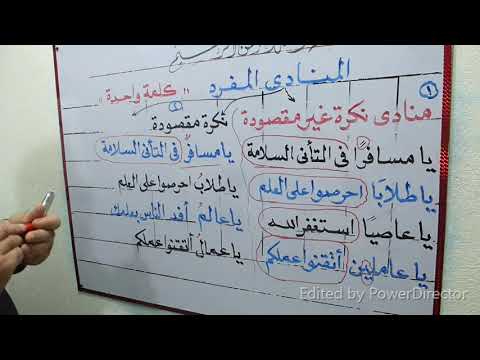 المنادى المفرد " كلمة واحدة "
١
منادى نكرة غير مقصودة
يا مسافرًا في التأنى السلامة
يا طلابًا احرصوا على العلم
يا عاصيًا استغفر الله
يا عاملين أتقنوا عملكم
٢
نكرة مقصودة
يا مسافرُ في التأنى السلامة
يا طلابُ احرصوا على العلم
يا عالمُ أفد الناس بعلمك
يا عمال أتقنوا عملكم
Edited by PowerDirector